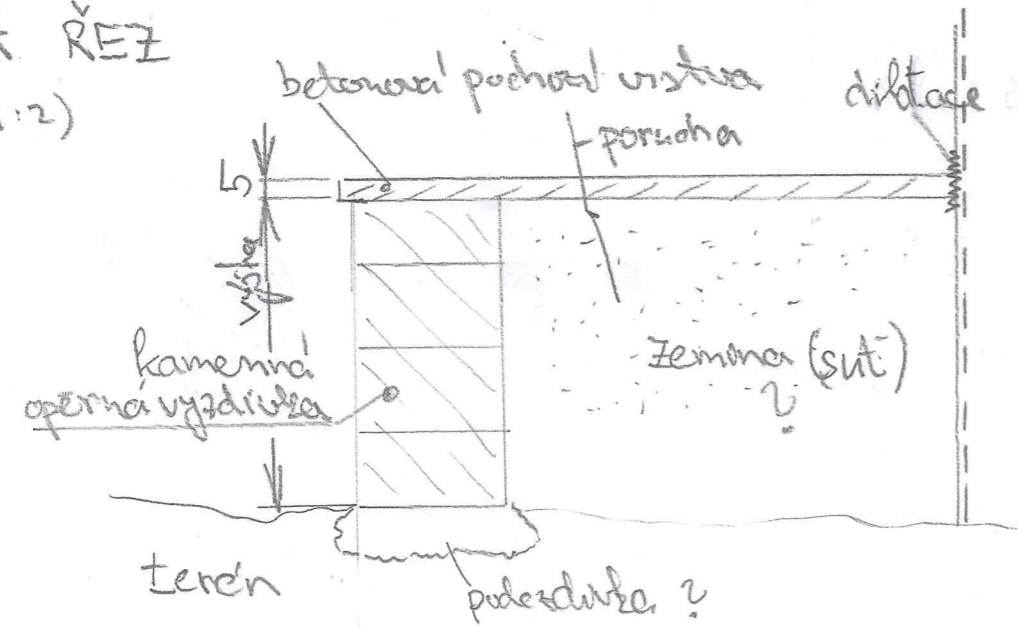 ŘEZ
1:2)
betonová pochozí vrstva
porucha
dilatace
5
výška
kamenná
opěrná vyzdívka
zemina (suť)
?
terén
podezdívka ?